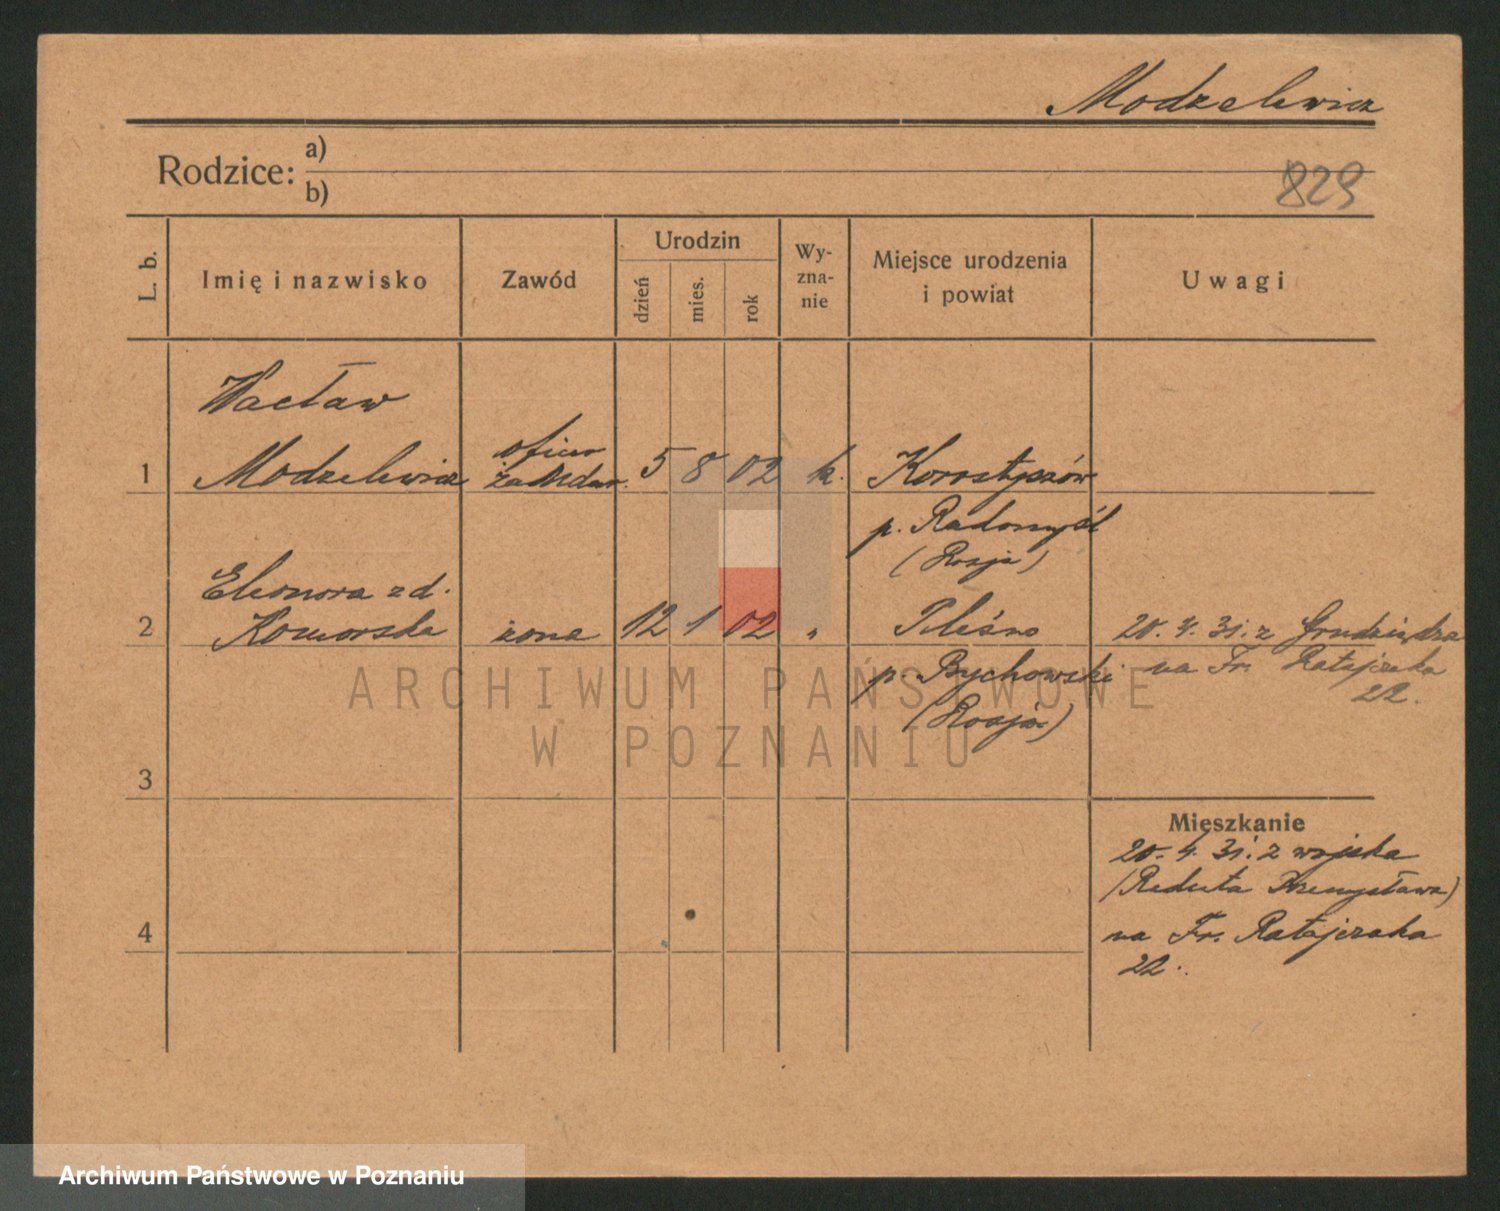 Modzelewicz
Rodzice: a)
b)
829
L. b.
Imię i nazwisko
Zawód
Urodzin
dzień
mies.
rok
Wy-
zna-
nie
Miejsce urodzenia
i powiat
Uwagi
Wacław
1 Modzelewicz
oficer
żandar.
5 8 02 k.
Korostyszów
p. Radomyśl
(Rosja)
Eleonora z d.
2 Komorska
żona 12 1 02 "
Pleśno
p. Bychowski
(Rosja)
20.4.31. z Grudziądza
na Fr. Ratajczaka
22.
3
4
Mieszkanie
20.4.31. z wojska
(Reduta Przemysława)
na Fr. Ratajczaka
22.
ARCHIWUM PAŃSTWOWE
W POZNANIU
Archiwum Państwowe w Poznaniu